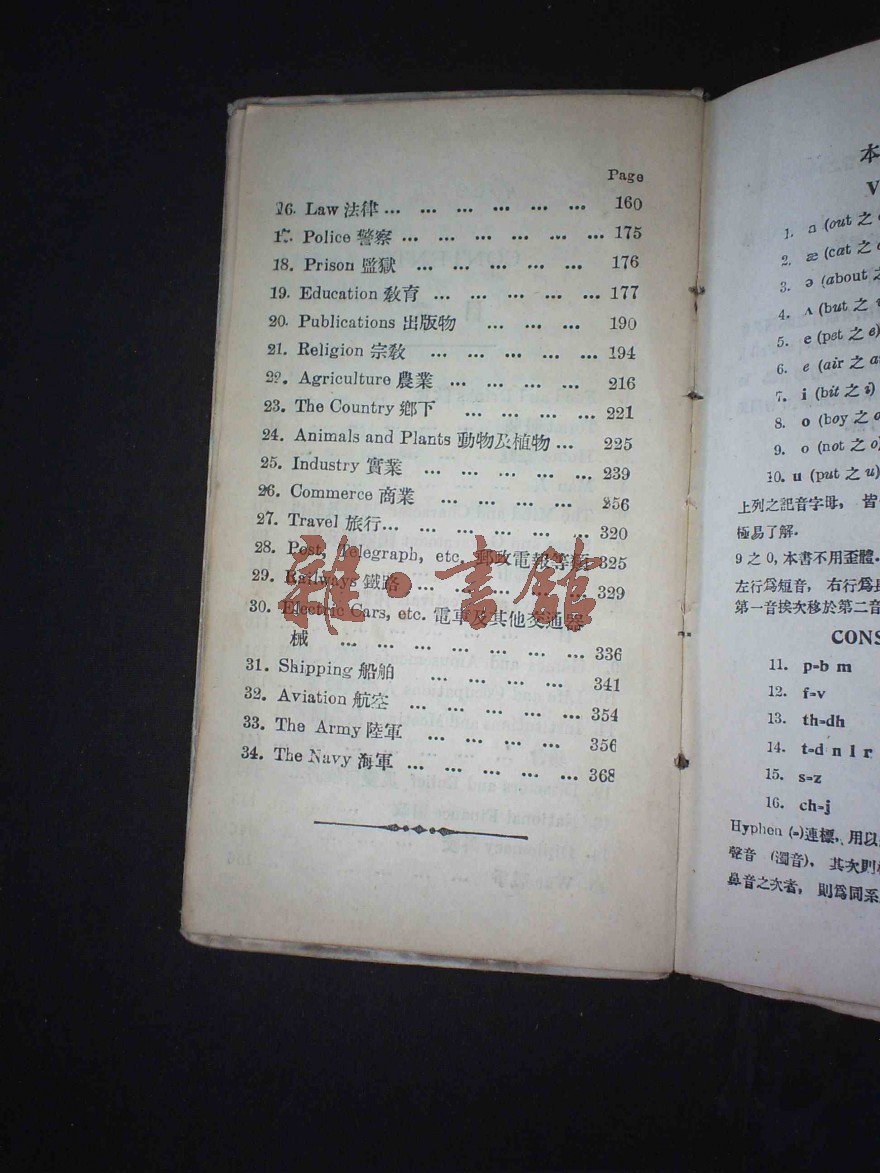 Page
16. Law 法律 ... ... ... ... ... ... 160
17. Police 警察 ... ... ... ... ... ... 175
18. Prison 監獄 ... ... ... ... ... 176
19. Education 敎育 ... ... ... ... ... 177
20. Publications 出版物 ... ... ... 190
21. Religion 宗敎 ... ... ... ... ... 194
22. Agriculture 農業 ... ... ... ... 216
23. The Country 鄉下 ... ... ... ... 221
24. Animals and Plants 動物及植物 ... 225
25. Industry 實業 ... ... ... ... ... 239
26. Commerce 商業 ... ... ... ... ... 256
27. Travel 旅行... ... ... ... ... ... 320
28. Post, Telegraph, etc. 郵政電報等類 325
29. Railways 鐵路 ... ... ... ... ... 329
30. Electric Cars, etc. 電車及其他交通器
械 ... ... ... ... ... ... ... 336
31. Shipping 船舶 ... ... ... ... 341
32. Aviation 航空 ... ... ... ... ... 354
33. The Army 陸軍 ... ... ... ... 356
34. The Navy 海軍 ... ... ... ... ... 368
雜·書館
本
V
1. a (out 之
2. æ (cat 之
3. ə (about 之
4. ʌ (but 之
5. e (pet 之 e)
6. e (air 之
7. i (bit 之 i)
8. o (boy 之
9. o (not 之 o)
10. u (put 之 u)
上列之記音字母， 皆
極易了解．
9 之 o, 本書不用歪體．
左行爲短音， 右行爲
第一音挨次移於第二音
CONS
11. p=b m
12. f=v
13. th=dh
14. t=d n l r
15. s=z
16. ch=j
Hyphen (=)連標，用以
聲音 (濁音)， 其次則
鼻音之次者， 則爲同系